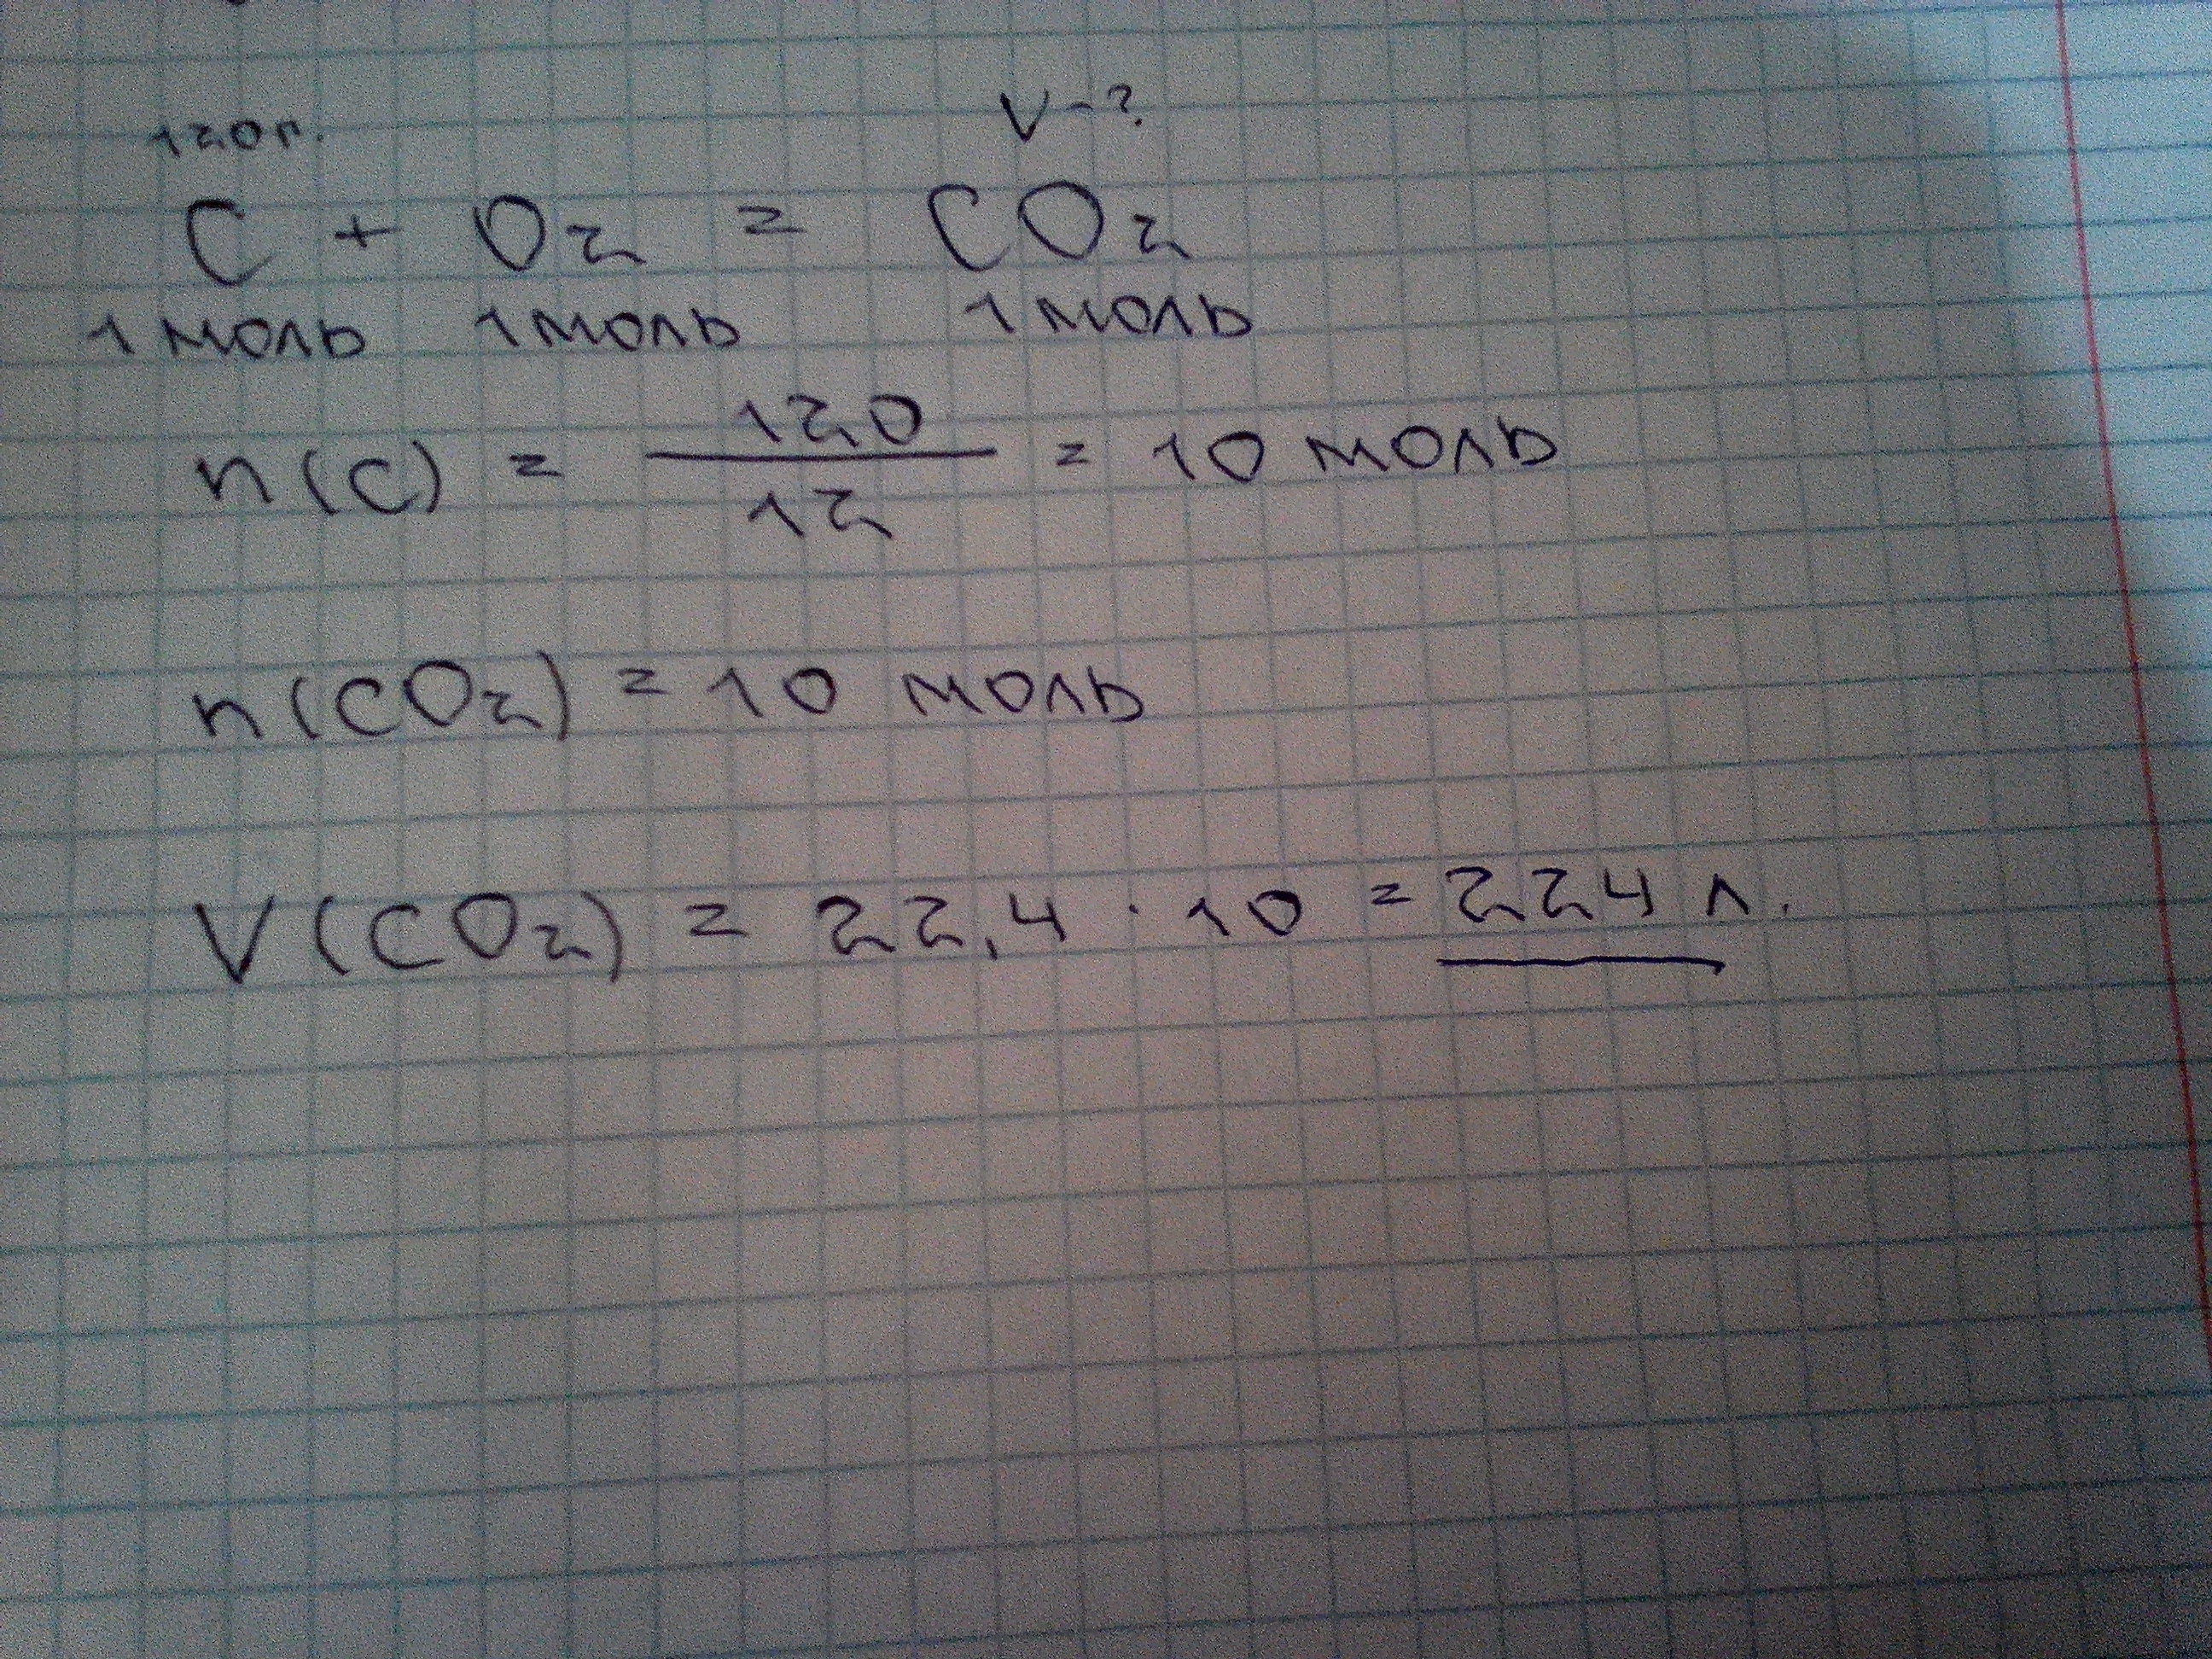 120г. V-?
C + O₂ = CO₂
1 моль 1 моль 1 моль
n(C) = 120/12 = 10 моль
n(CO₂) = 10 моль
V(CO₂) = 22,4 · 10 = 224 л.